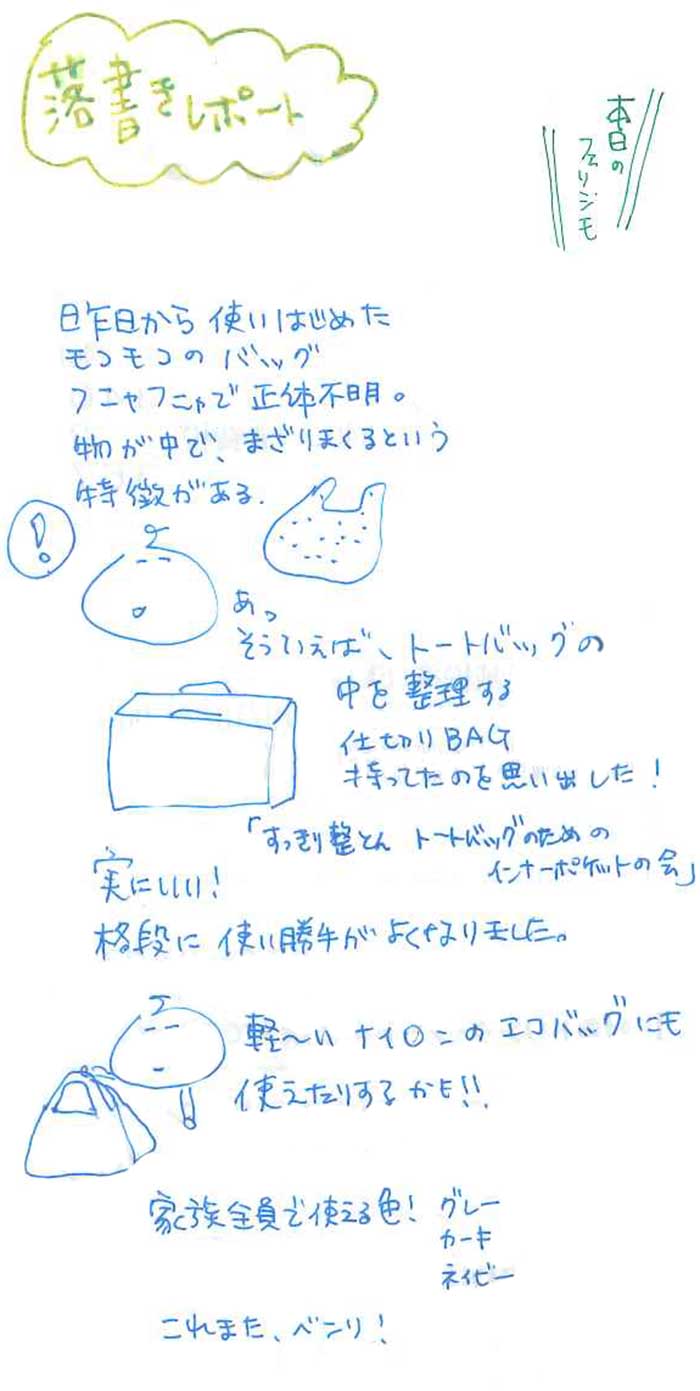 落書きレポート
本日の
フェリシモ
昨日から使いはじめた
モコモコのバッグ
フニャフニャで正体不明。
物が中で、まざりまくるという
特徴がある。
!
あっ
そういえば、トートバッグの
中を整理する
仕切りBAG
持ってたのを思い出した!
「すっきり整とん トートバッグのための
インナーポケットの会」
実にいい!
格段に使い勝手がよくなりました。
軽〜いナイロンのエコバッグにも
使えたりするかも!!
家族全員で使える色! グレー
カーキ
ネイビー
これまた、ベンリ!